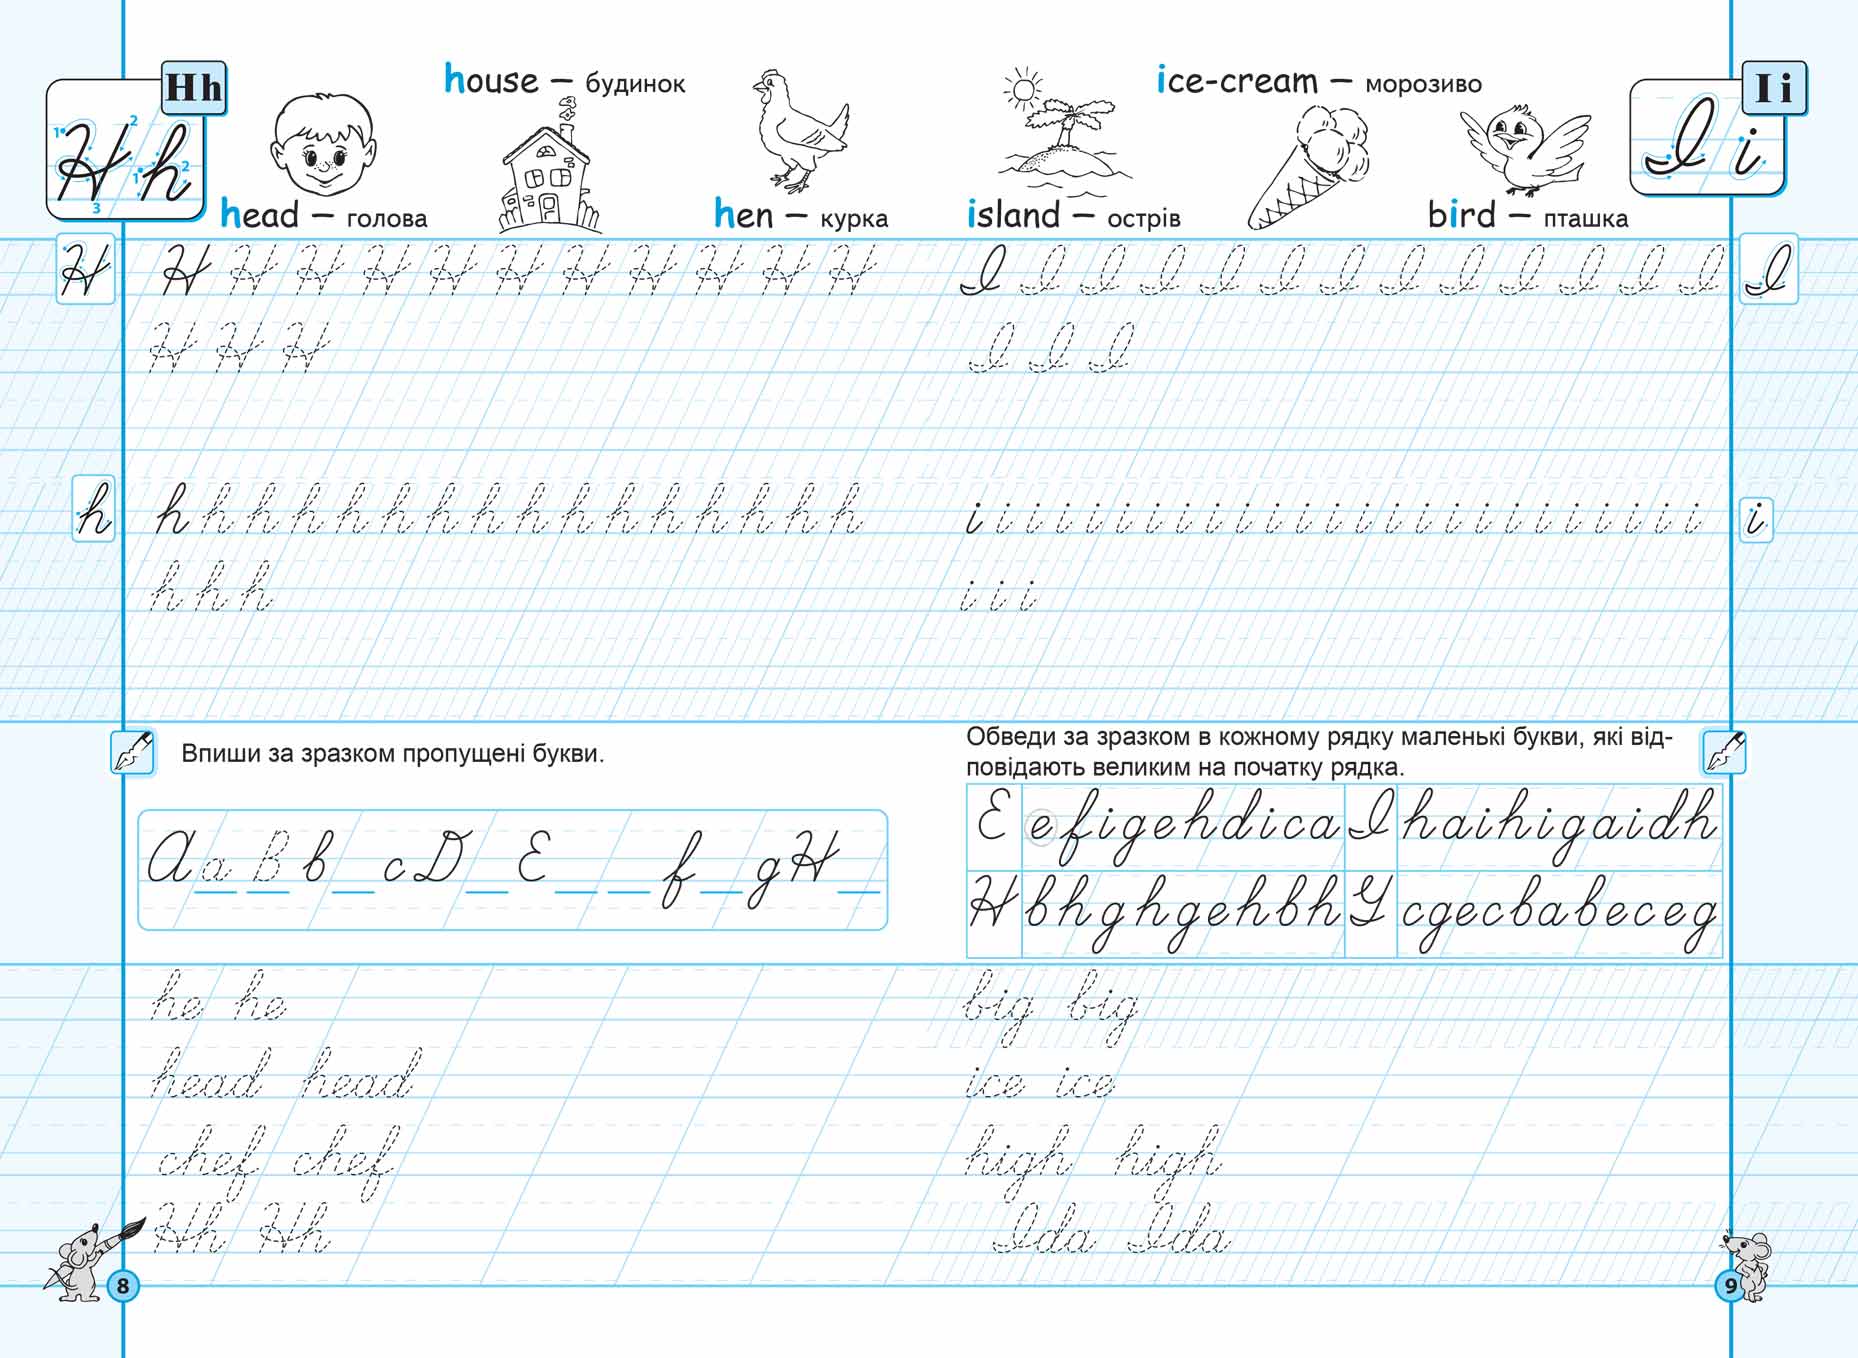 Hh
H h
1 2 3 1 2
house – будинок
head – голова
hen – курка
H
H H H H H H H H H H H
H H H
h
h h h h h h h h h h h h h h h h
h h h
Впиши за зразком пропущені букви.
A a B b _ c D _ E _ _ f _ g H _
he he
head head
chef chef
Hh Hh
8
ice-cream – морозиво
island – острів
bird – пташка
I i
I i
I I I I I I I I I I I I I
I
I I I
i i i i i i i i i i i i i i i i i i i i i i i i i
i
i i i
Обведи за зразком в кожному рядку маленькі букви, які від-
повідають великим на початку рядка.
E e f i g e h d i c a I h a i h i g a i d h
H b h g h g e h b h G c g e c b a b e c e g
big big
ice ice
high high
Ida Ida
9